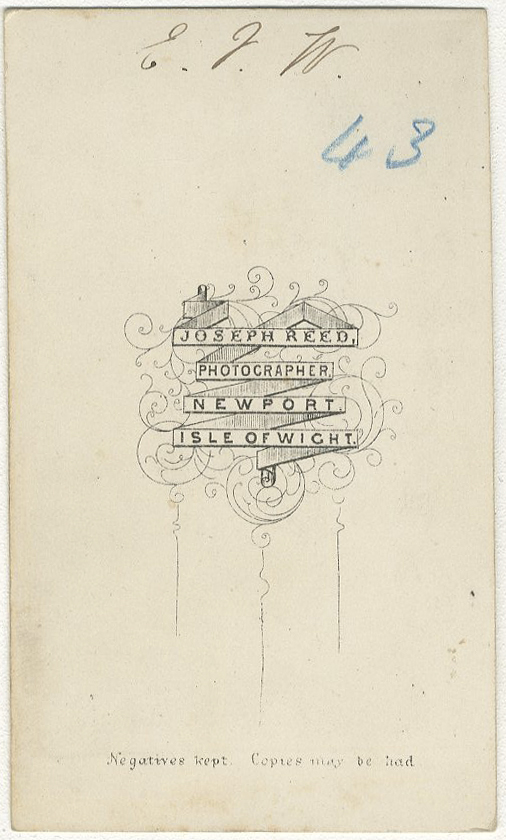 E. J. W.
43
JOSEPH REED,
PHOTOGRAPHER,
NEWPORT.
ISLE OF WIGHT.
Negatives kept. Copies may be had